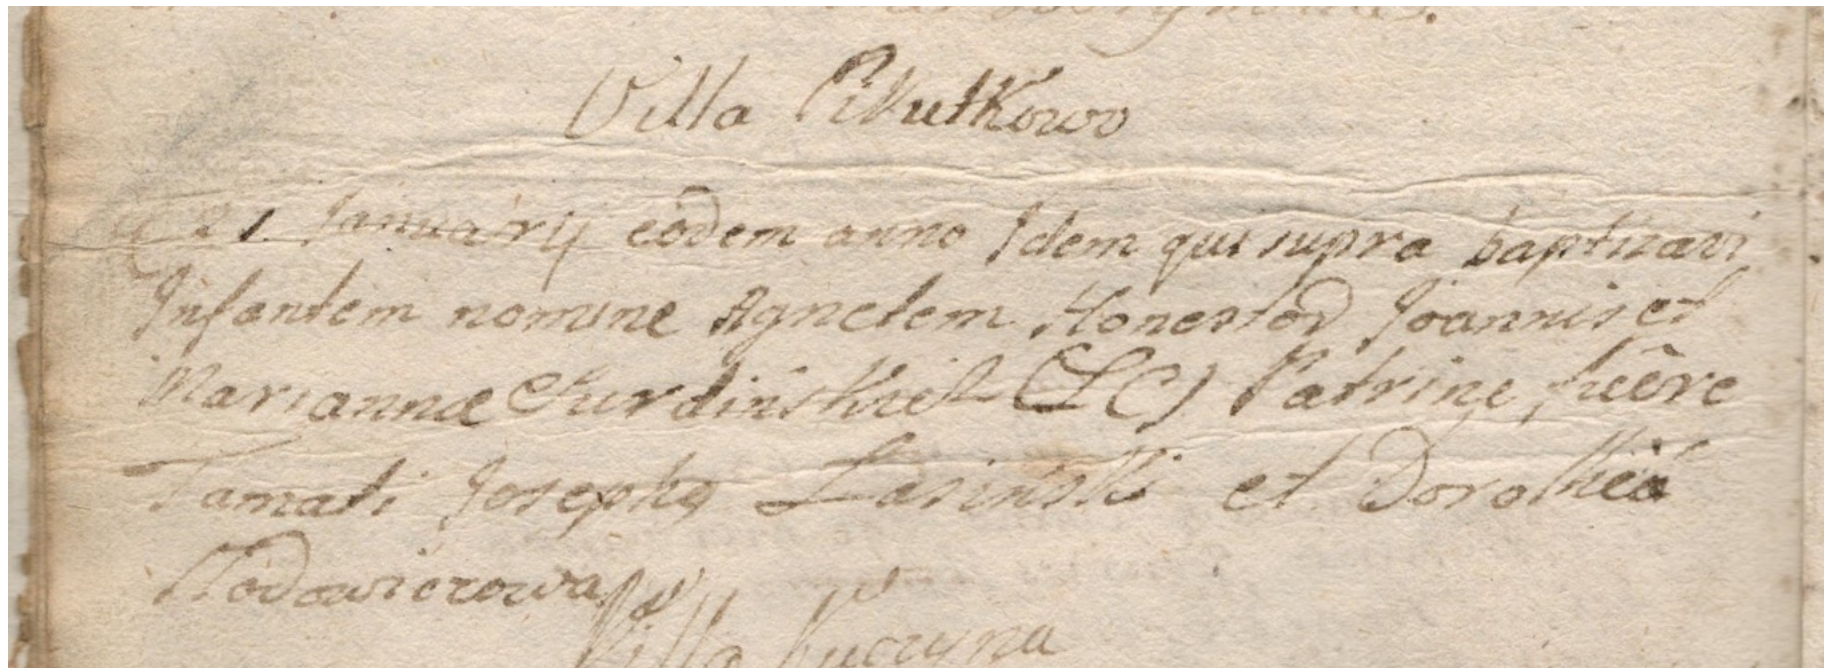 Villa Pikutkowo
21 Januarij eodem anno Idem qui supra baptizavi
Infantem nomine Agnetem Honestor Joannis et
Mariannæ Gurdinskich (LC) Patrini fuere
Famati Josephg Lasinski et Dorothea
Villa Kuczyna